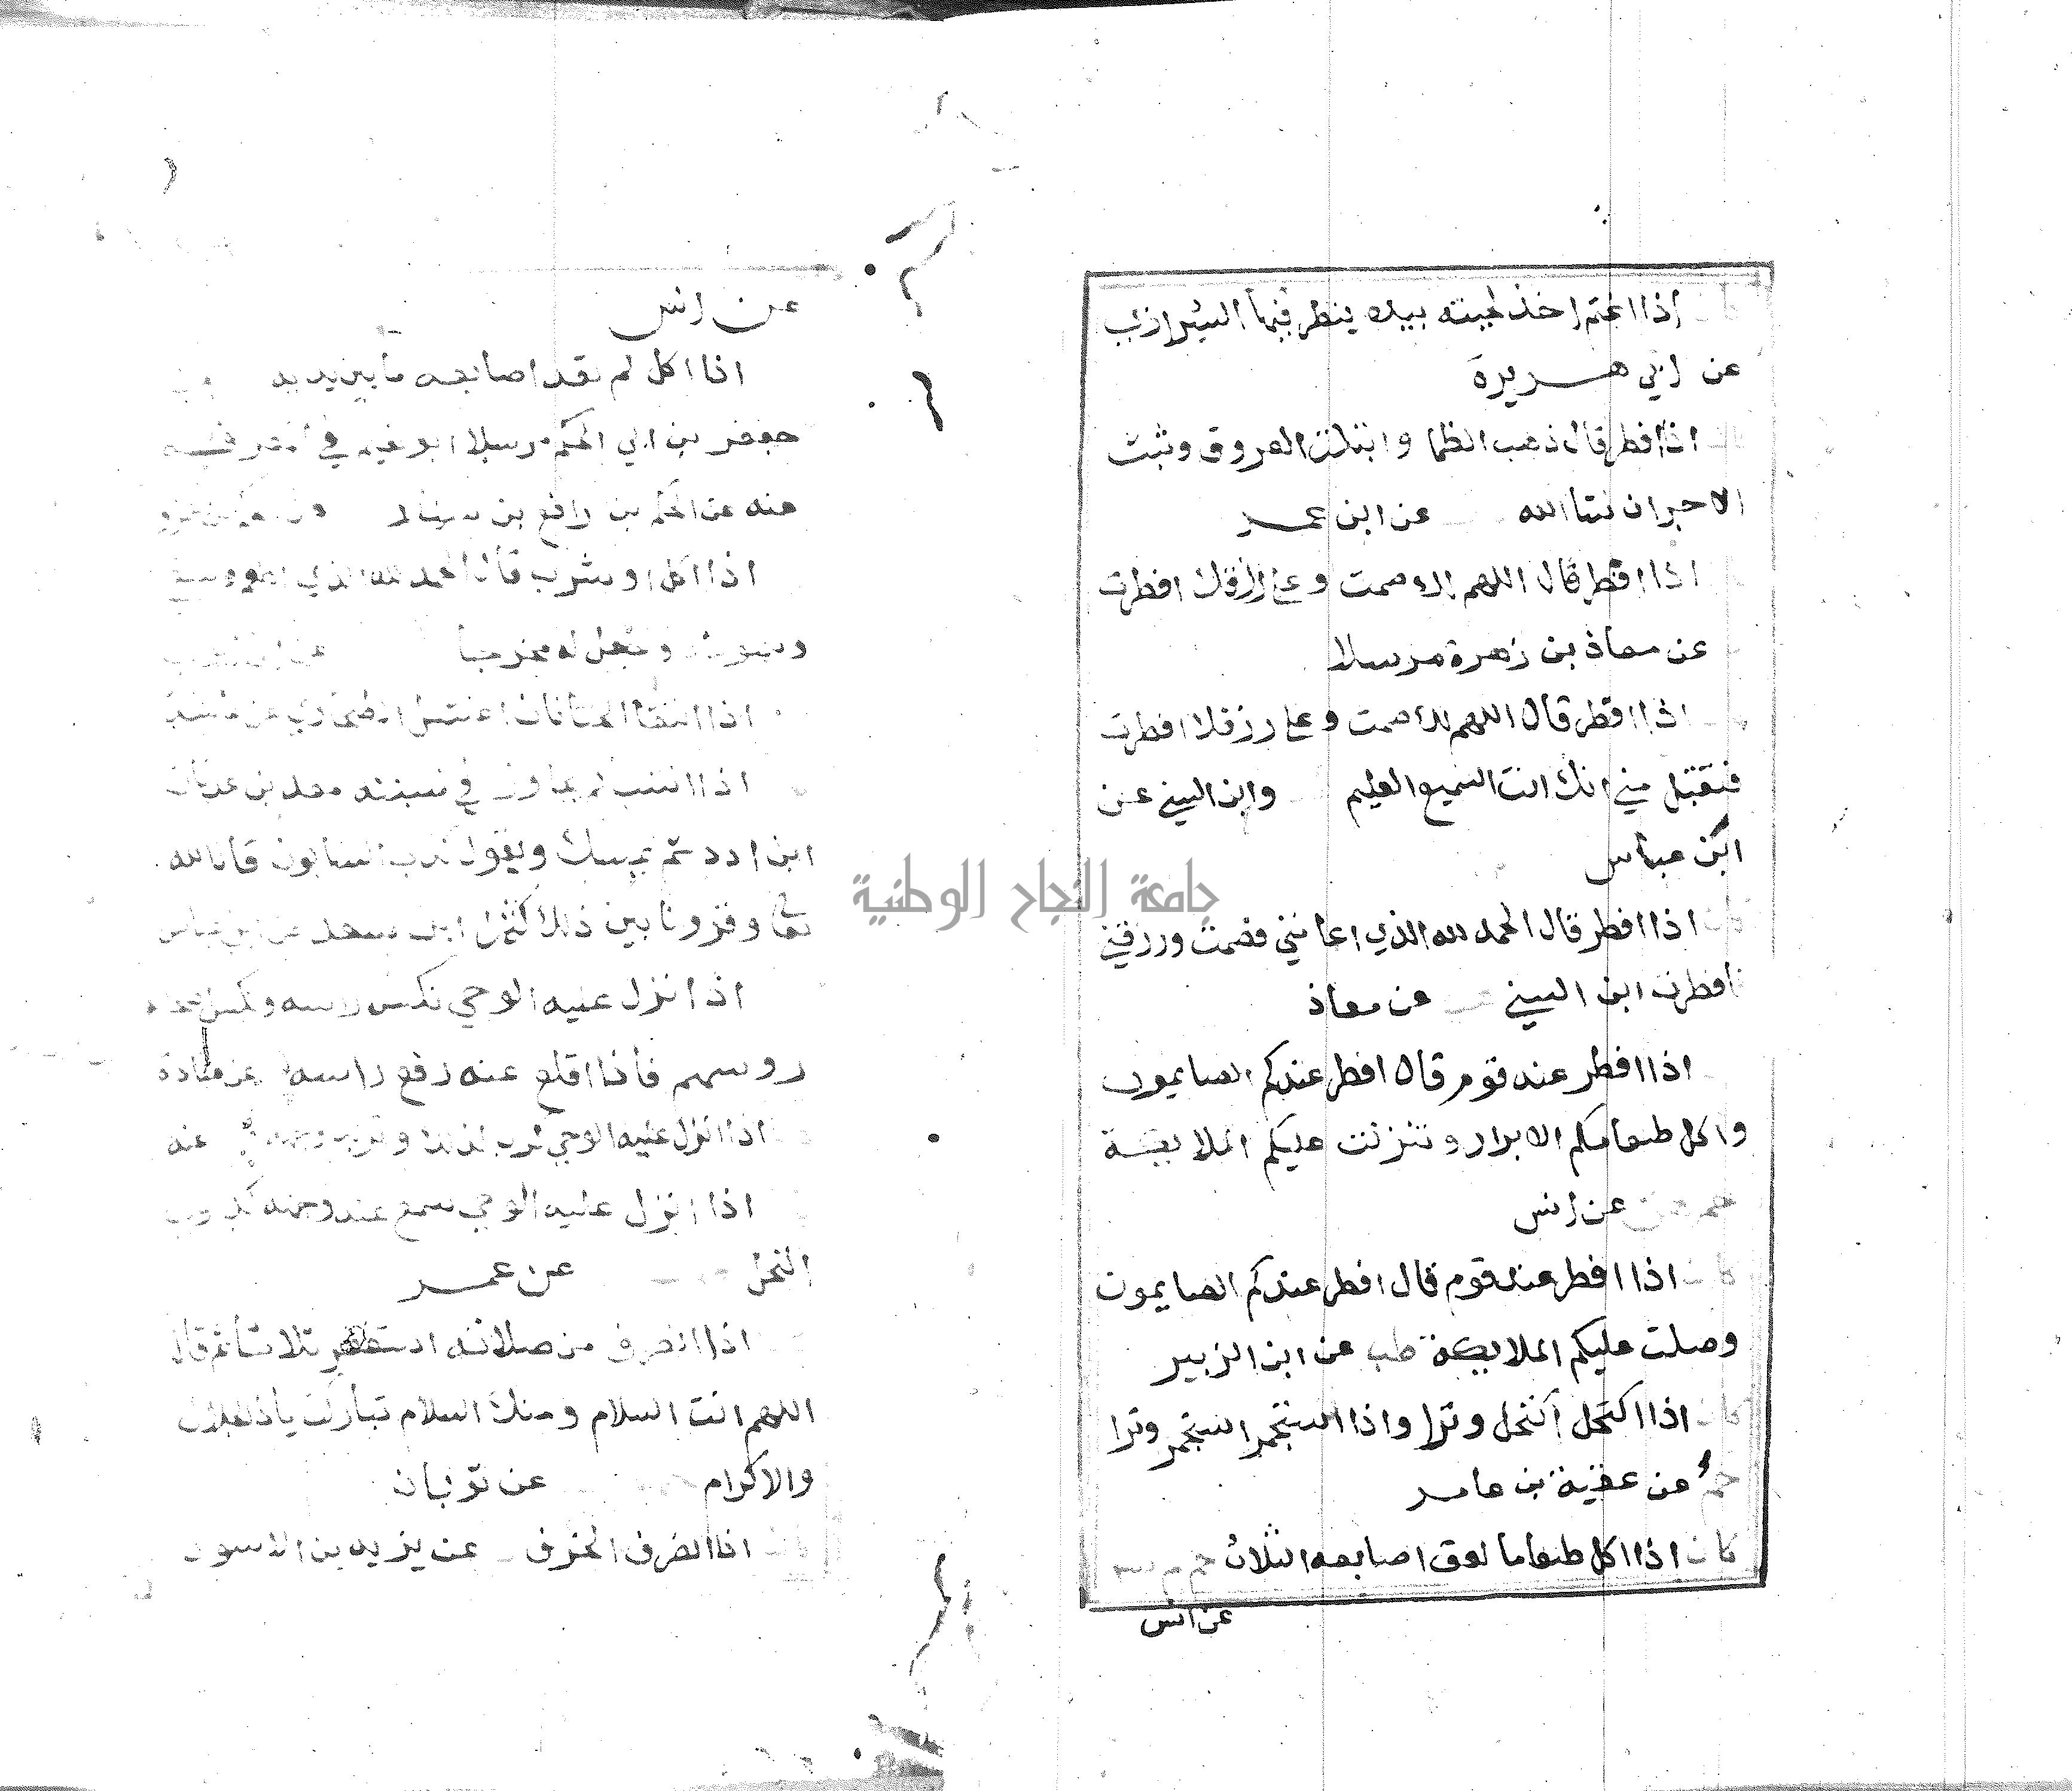 كان اذا اغتم اخذ لحيته بيده ينظر فيها الشيرازي
عن ابي هريرة
كان اذا افطر قال ذهب الظما وابتلت العروق وثبت
الاجر ان شا الله عن ابن عمر
اذا افطر قال اللهم لك صمت وعلى رزقك افطرت
عن معاذ بن زهرة مرسلا
اذا افطر قال اللهم لك صمت وعلى رزقك افطرت
فتقبل مني انك انت السميع العليم وابن السني عن
ابن عباس
كان اذا افطر قال الحمد لله الذي اعانني فصمت ورزقني
فافطرت ابن السني عن معاذ
اذا افطر عند قوم قال افطر عندكم الصايمون
واكل طعامكم الابرار وتنزلت عليكم الملايكة
حم عن انس
كان اذا افطر عند قوم قال افطر عندكم الصايمون
وصلت عليكم الملايكة طب عن ابن الزبير
كان اذا اكتحل اكتحل وترا واذا استجمر استجمر وترا
حم عن عقبة بن عامر
كان اذا اكل طعاما لعق اصابعه الثلاث حم م
عن انس
عن انس
اذا اكل لم تعد اصابعه ما بين يديه
جعفر بن ابي الحكم مرسلا ابو نعيم في المعرفة
عنه عن الحكم بن رافع بن
اذا اكل او شرب قال الحمد لله الذي اطعم وسقى
وسوغه وجعل له مخرجا
اذا التقا الختانان اغتسل الطحاوي عن عايشة
اذا انتسب لم يجاوز في نسبته معد بن عدنان
ابن ادد ثم يمسك ويقول كذب النسابون قال الله
تعالى وقرونا بين ذلك كثيرا ابن سعد عن ابن عباس
اذا نزل عليه الوحي نكس راسه ونكس اصحابه
روسهم فاذا اقلع عنه رفع راسه عن عبادة
اذا انزل عليه الوحي كرب لذلك وتربد وجهه عنه
اذا انزل عليه الوحي سمع عند وجهه كدوي
النحل عن عمر
اذا انصرف من صلاته استغفر ثلاثا ثم قال
اللهم انت السلام ومنك السلام تباركت ياذا الجلال
والاكرام عن ثوبان
كان اذا انصرف انحرف عن يزيد بن الاسود
جامعة النجاح الوطنية